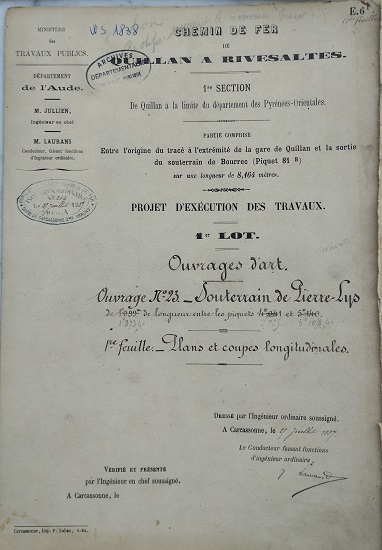 WS 1838
E.6
1ère feuille
MINISTÈRE
des
TRAVAUX PUBLICS.
DÉPARTEMENT
de l'Aude.
M. JULLIEN,
Ingénieur en chef.
M. LAURANS
Conducteur, faisant fonctions
d'Ingénieur ordinaire.
ARCHIVES
DÉPARTEMENTALES
CHEMIN DE FER
DE
QUILLAN A RIVESALTES.
1re SECTION
De Quillan à la limite du département des Pyrénées-Orientales.
PARTIE COMPRISE
Entre l'origine du tracé à l'extrémité de la gare de Quillan et la sortie
du souterrain de Bourrec (Piquet 81 B)
sur une longueur de 8,164 mètres.
PROJET D'EXÉCUTION DES TRAVAUX.
1er LOT.
Ouvrages d'art.
Ouvrage No 23. — Souterrain de Pierre-Lys
de longueur entre les piquets et
1re feuille. — Plans et coupes longitudinales.
DRESSÉ par l'Ingénieur ordinaire soussigné.
A Carcassonne, le juillet
Le Conducteur faisant fonctions
d'ingénieur ordinaire
VÉRIFIÉ ET PRÉSENTÉ
par l'Ingénieur en chef soussigné.
A Carcassonne, le
Carcassonne, Imp. P. Labau,